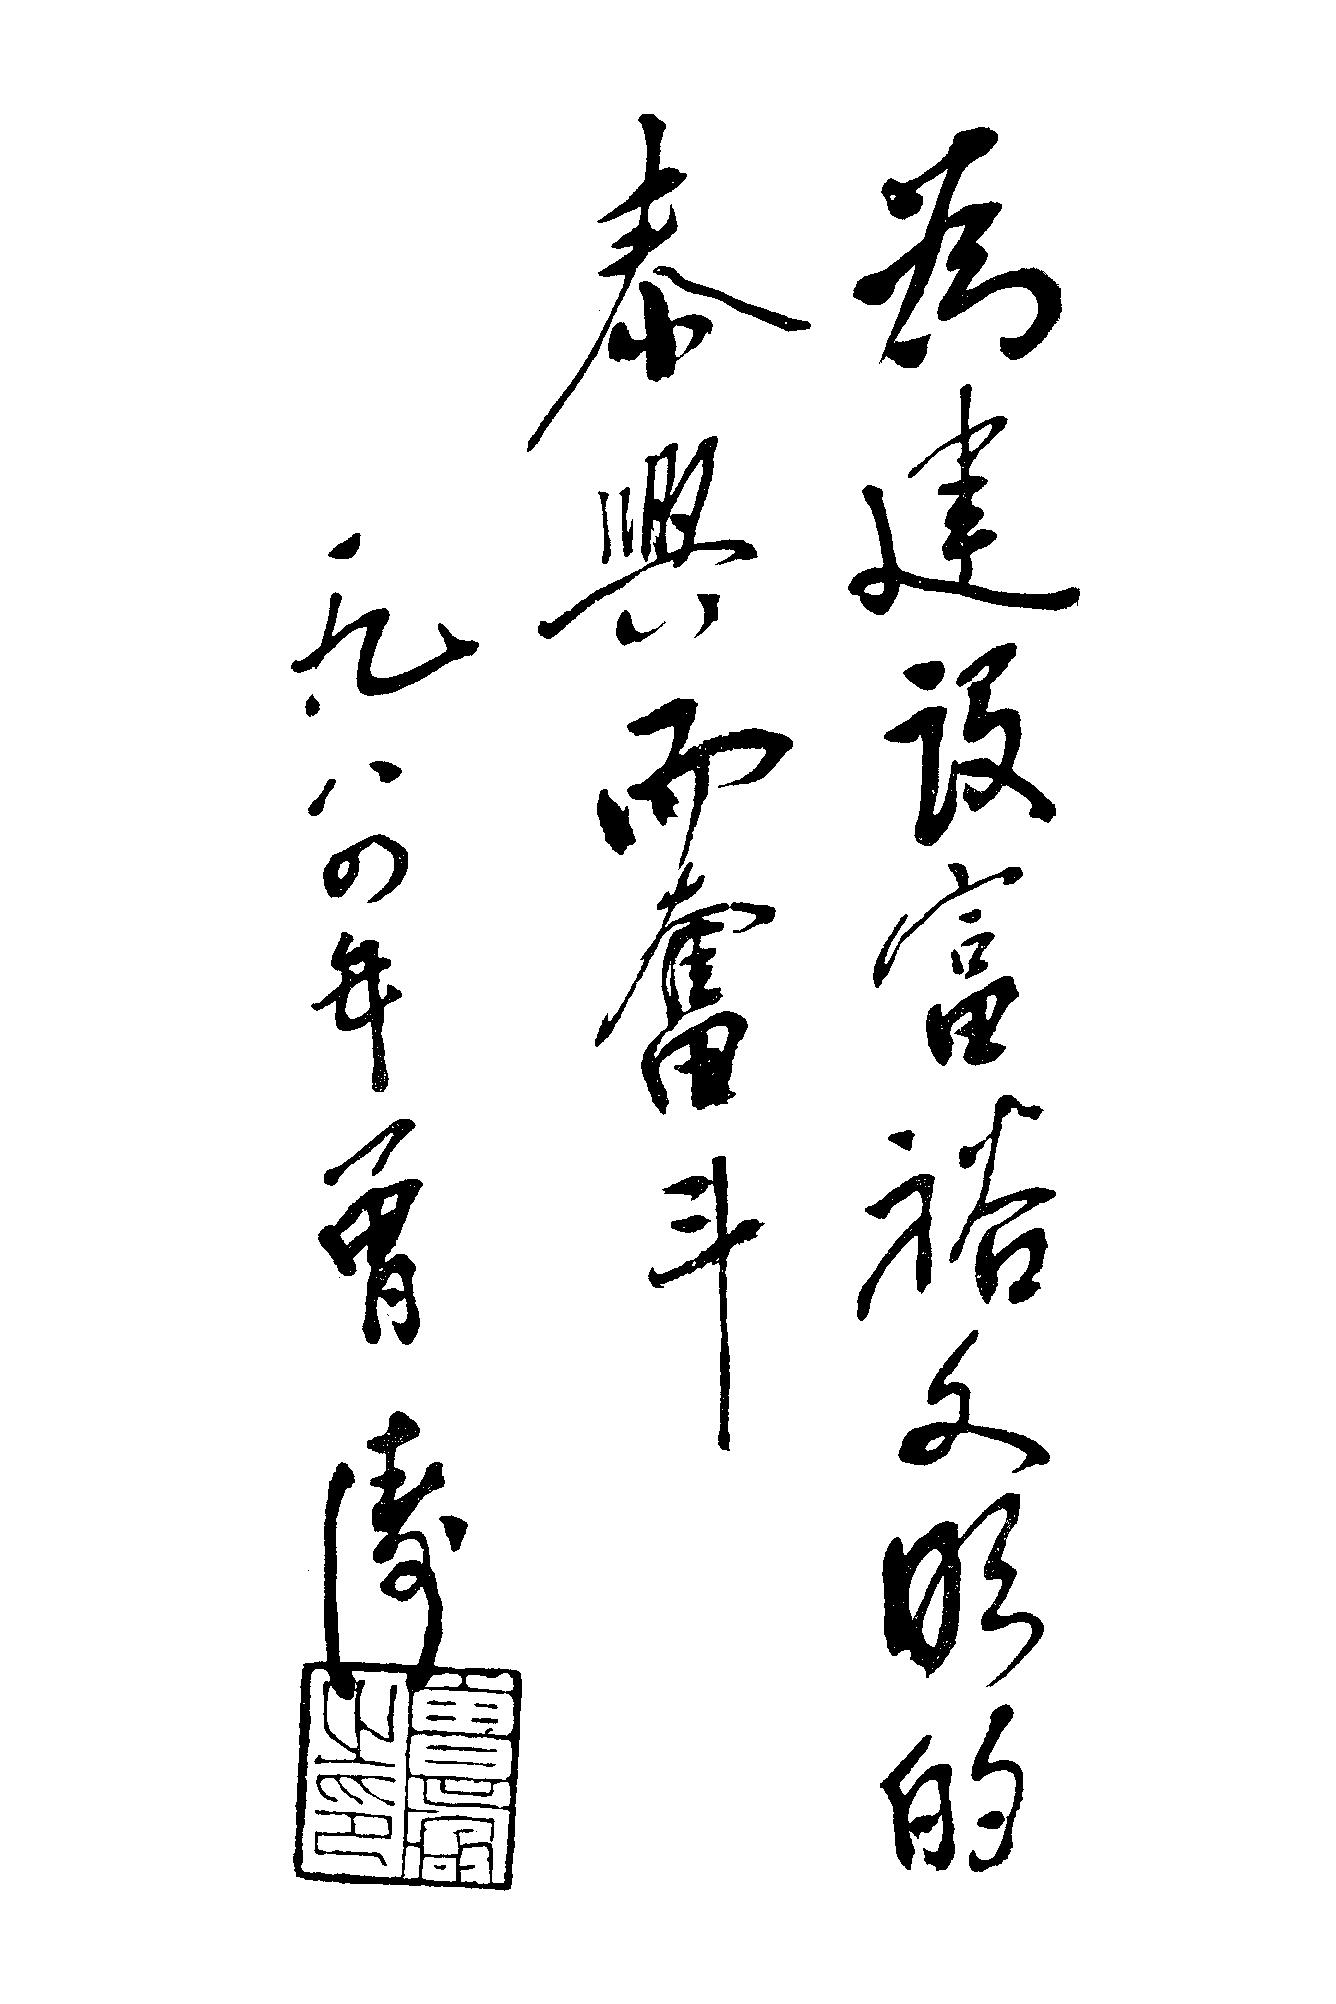 為建设富裕文明的
泰興而奮斗
一九八四年